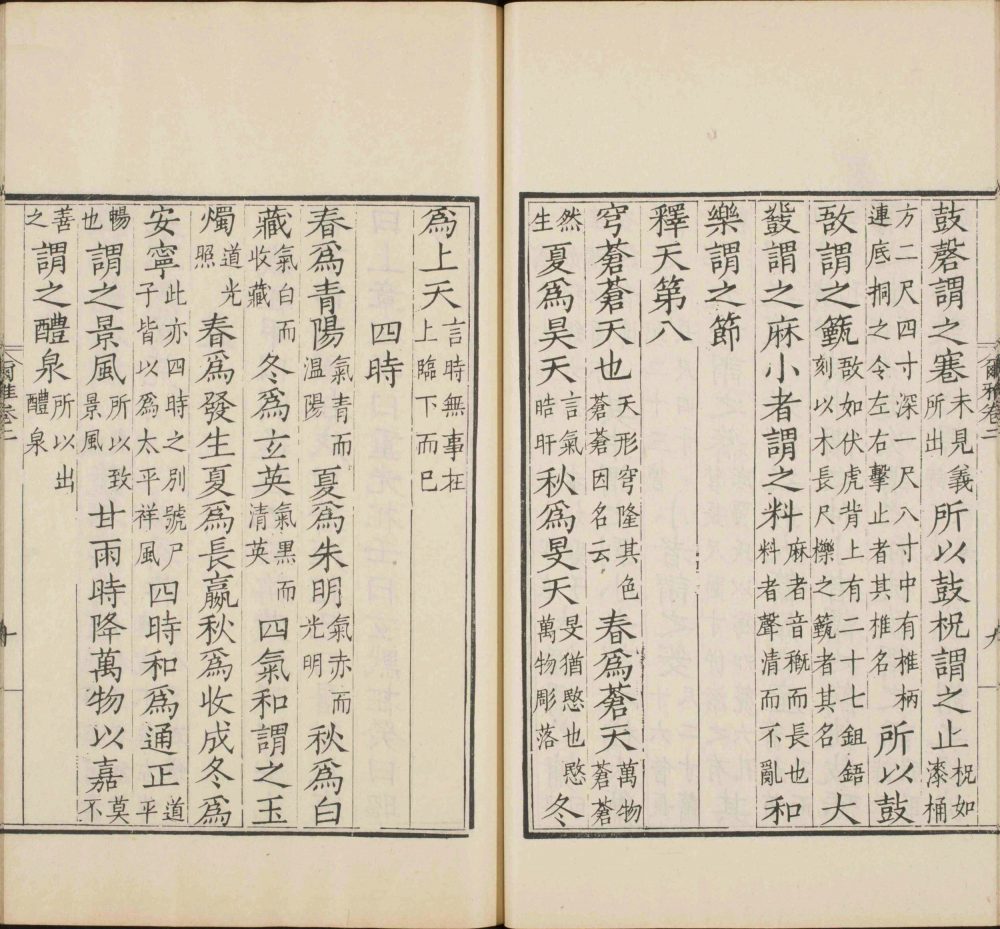 鼓磬謂之寋未見義所出所以鼓柷謂之止柷如漆桶
方二尺四寸深一尺八寸中有椎柄連底桐之令左右擊止者其椎名所以鼓
敔謂之籈敔如伏虎背上有二十七鉏鋙刻以木長尺櫟之籈者其名大
鼗謂之麻小者謂之料麻者音穊而長也料者聲清而不亂和
樂謂之節
釋天第八
穹蒼蒼天也天形穹隆其色蒼蒼因名云春爲蒼天萬物蒼蒼
然生夏爲昊天言氣晧旰秋爲旻天旻猶愍也愍萬物彫落冬
爲上天言時無事在上臨下而已
四時
春爲青陽氣青而温陽夏爲朱明氣赤而光明秋爲白
藏氣白而收藏冬爲玄英氣黑而清英四氣和謂之玉
燭道光照春爲發生夏爲長嬴秋爲收成冬爲
安寧此亦四時之別號尸子皆以爲太平祥風四時和爲通正道平
暢也謂之景風所以致景風甘雨時降萬物以嘉莫不
善之謂之醴泉所以出醴泉
爾雅卷二